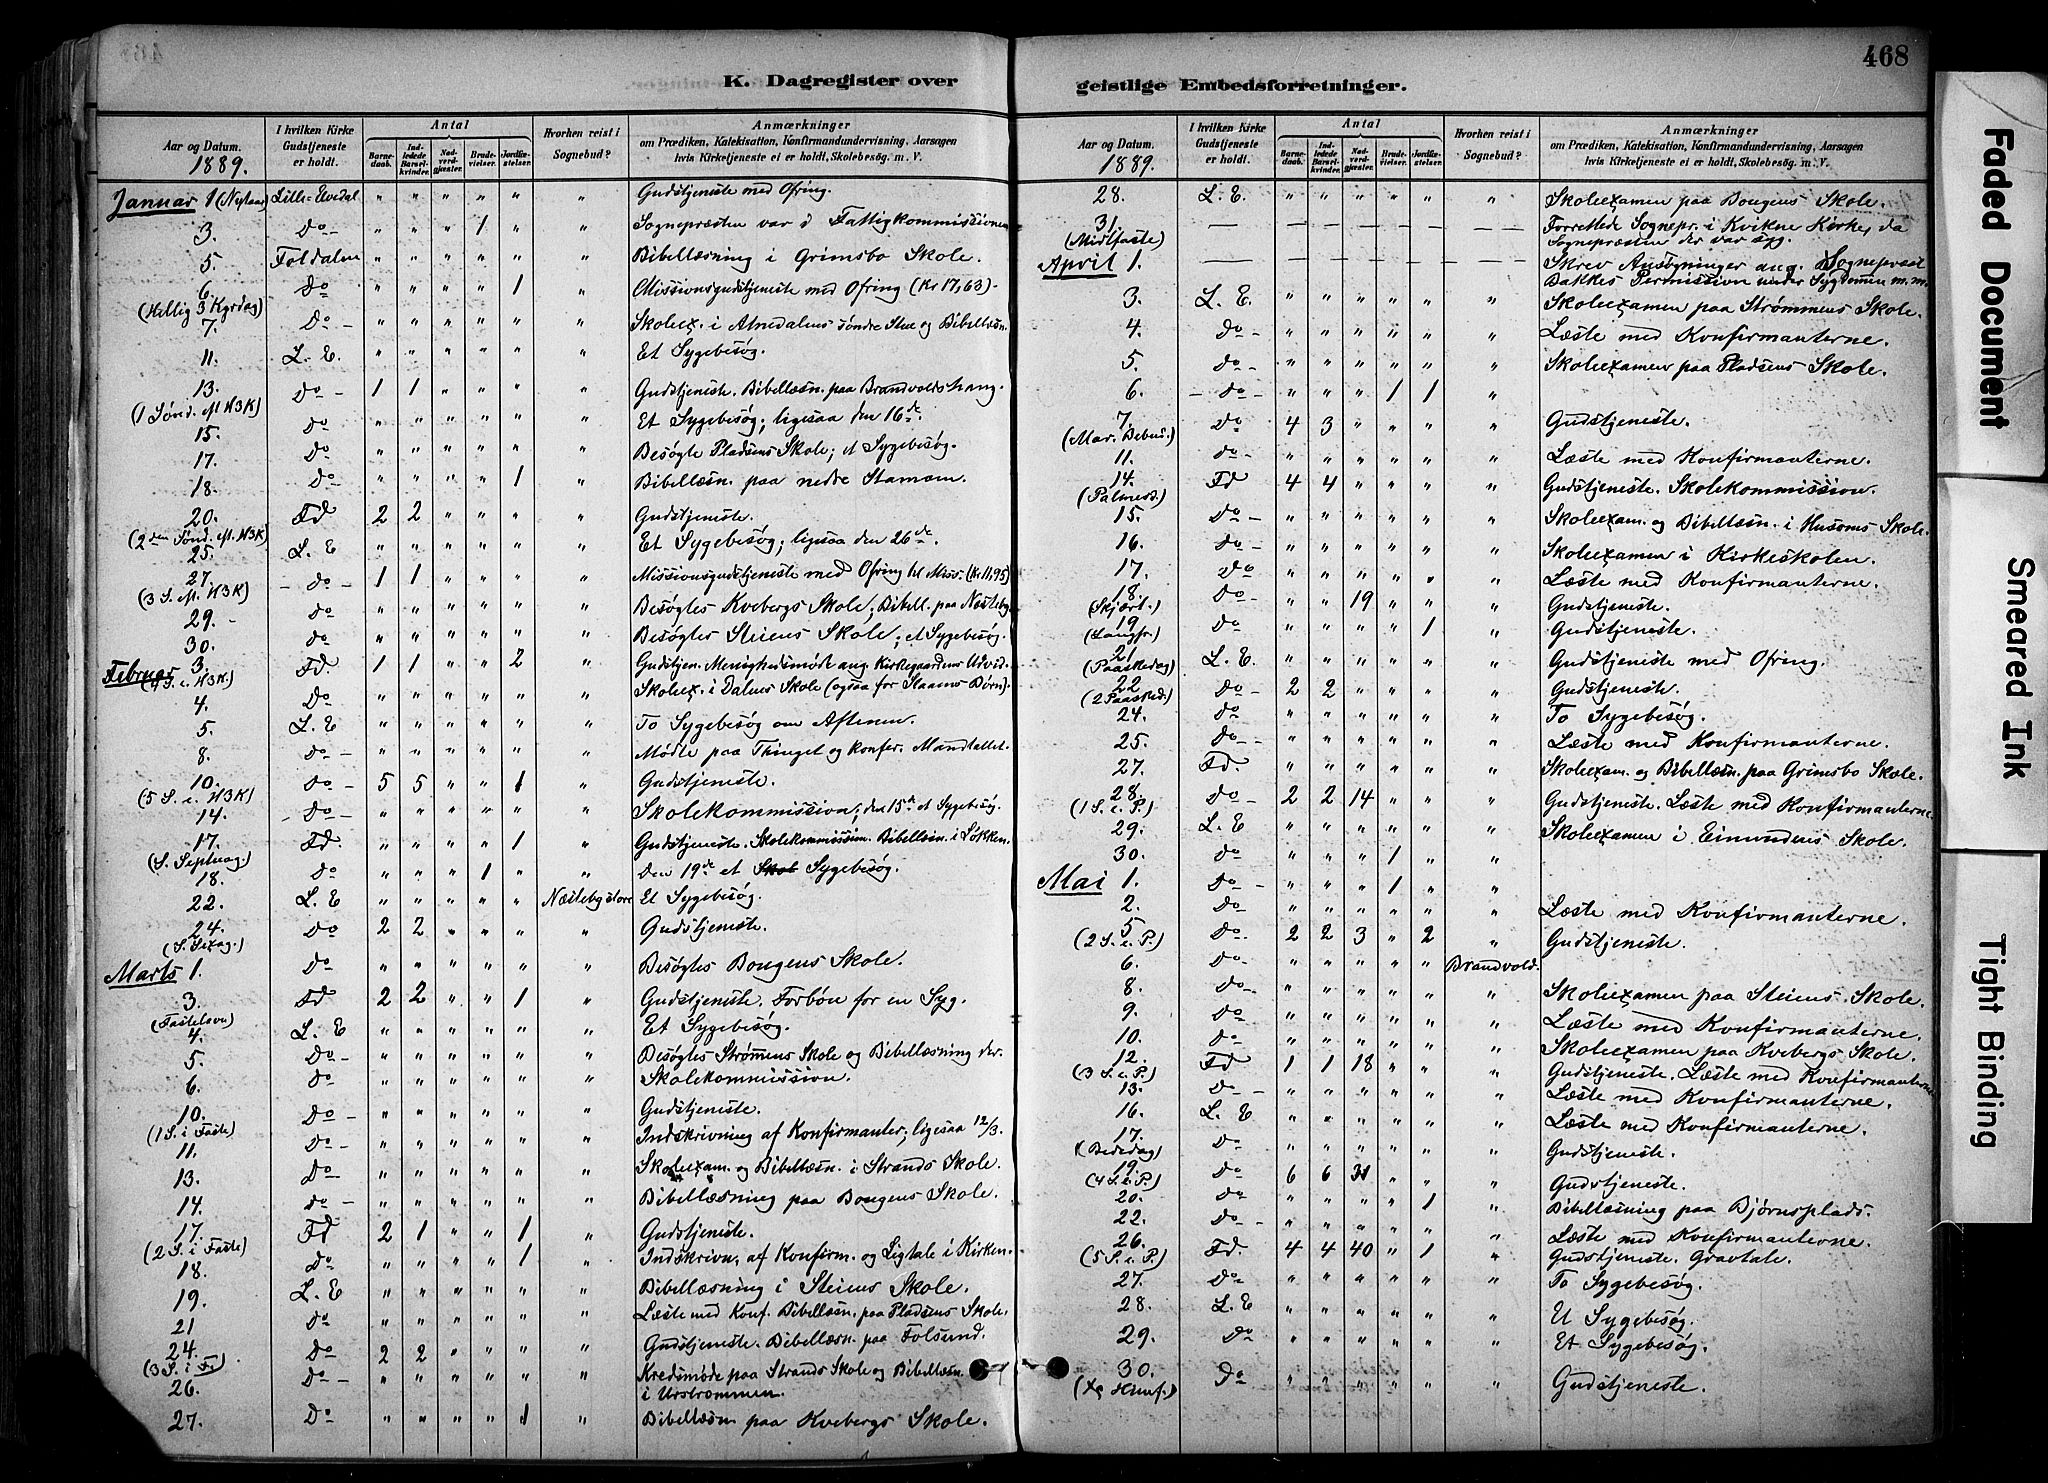 468
K. Dagregister over geistlige Embedsforretninger.
Aar og Datum. | I hvilken Kirke Gudstjeneste er holdt. | Antal | Barnedaab. | Indledede Barselkvinder. | Nadverdgjæster. | Brudevielser. | Jordfæstelser. | Hvorhen reist i Sognebud? | Anmærkninger om Prædiken, Katekisation, Konfirmandundervisning, Aarsagen hvis Kirketjeneste ei er holdt, Skolebesøg. m. V.
1889.
Januar 1 (Nytaar) Lille-Elvedal " " " " " " Gudstjeneste med Ofring.
3. Do - " " " 1 " " Sognepræsten var i Fattigkommissionen
5. Foldalen " " " " " " Bibellæsning i Grimsbo Skole.
6 (Hellig 3 Kgrdag) Do " " " " 1 " Missionsgudstjeneste med Ofring (Kr 17,63)-
7. Do - " " " " " " Skoleex. i Atnedalens søndre Stue og Bibellæsn.
11. L. E. " " " " " " Et Sygebesøg.
13. (1 Sønd. eft. H3K) Do - 1 1 " " " " Gudstjeneste. Bibellæsn. paa Brandvoldshaug.
15. Do " " " " " " Et Sygebesøg; ligesaa den 16de.
17. Do " " " " " " Besøgte Pladsens Skole; et Sygebesøg.
18. Do " " " " 1 " Bibellæsn. paa nedre Stamoen.
20. (2den Sønd. eft. H3K) Fd 2 2 " " " " Gudstjeneste.
25. L. E " " " " " " Et Sygebesøg; ligesaa den 26de.
27. (3 S. eft. H3K) - Do - 1 1 " " " " Missionsgudstjeneste med Ofring til Miss. (Kr 11,95)
29. Do " " " " " " Besøgtes Kvebergs Skole; Bibell. paa Næsteby.
30. Do " " " " " " Besøgtes Steiens Skole; et Sygebesøg.
Februar 3. (4 S. e. H3K) Fd. 1 1 " " 2 " Gudstjen. Menighedsmøde ang. Kirkegaardens Udvid.
4. Do " " " " " " Skoleex. i Dalens Skole (ogsaa for Slaaens Børn).
5. L. E " " " " " " To Sygebesøg om Aftenen.
8. Do - " " " " " " Mødte paa Thinget og konfer. Mandtallet.
10. (5 S. e. H3K) Do - 5 5 " " 1 " Gudstjeneste.
14. - Do - " " " " " " Skolekommission; den 15de et Sygebesøg.
17. (S. Septuag) Fd. " " " " 1 " Gudstjeneste. Skolekommission. Bibellæsn. i Løkken.
18. Do " " " 1 " " Den 19de et Skol Sygebesøg.
22. L. E " " " " " Næsteby store Et Sygebesøg.
24. (S. Sexag.) Do 2 2 " " " " Gudstjeneste.
Marts 1. Do " " " " " " Besøgtes Bougens Skole.
3. (Fastelavn) Fd 2 2 " " 1 " Gudstjeneste. Forbøn for en Syg.
4. L. E " " " " " " Et Sygebesøg.
5. Do - " " " " " " Besøgtes Strømens Skole og Bibellæsning der.
6. Do " " " " " " Skolekommission.
10. (1 S. i Faste) Do - " " " " " " Gudstjeneste.
11. Do - " " " " " " Indskrivning af Konfirmanter; ligesaa 12/3.
13. Do - " " " " " " Skoleexam. og Bibellæsn. i Strands Skole.
14. Do - " " " " " " Bibellæsning paa Bougens Skole.
17. (2 S. i Faste) Fd 2 1 " " 1 " Gudstjeneste.
18. Do " " " " 1 " Indskrivn. af Konfirm. og Ligtale i Kirken.
19. L. E " " " " " " Bibellæsning i Steiens Skole.
21 Do " " " " " " Læste med Konf. Bibellæsn. paa Pladsens Skole.
24. (3 S. i F.) Do 2 2 " " " " Gudstjeneste. Bibellæsn. paa Folsund.
26. Do - " " " " " " Kredsmøde paa Strands Skole og Bibellæsn.
i Urstrømmen
27. Do " " " " 1 " Bibellæsn. paa Kvebergs Skole.
Aar og Datum. | I hvilken Kirke Gudstjeneste er holdt. | Antal | Barnedaab. | Indledede Barselkvinder. | Nadverdgjæster. | Brudevielser. | Jordfæstelser. | Hvorhen reist i Sognebud? | Anmærkninger om Prædiken, Katekisation, Konfirmandundervisning, Aarsagen hvis Kirketjeneste ei er holdt, Skolebesøg. m. V.
1889.
28. L. E. " " " " " " Skoleexamen paa Bougens Skole.
31. (Midtfaste) - - - - - - - Forrettede Sognepr. i Kvikne Kirke, da
Sognepræsten der var syg.
April 1. - - - - - - - Skrev Ansøgninger ang. Sognepræst
Bakkes Permission under Sygdommen m. m.
3. L. E. " " " " " " Skoleexamen paa Strømmens Skole.
4. Do - " " " " " " Læste med Konfirmanterne.
5. Do " " " " " " Skoleexamen paa Pladsens Skole.
6 - Do - " " " 1 1 "
7. (Mar. Bebud.) Do 4 3 " " " " Gudstjeneste.
11. Do - " " " " " " Læste med Konfirmanterne.
14. (Palmesd.) Fd 4 4 " " " " Gudstjeneste. Skolekommission.
15. Do - " " " " " " Skoleexam. og Bibellæsn. i Husoms Skole.
16. Do - " " " " " " Skoleexamen i Kirkeskolen.
17. Do " " " " " " Læste med Konfirmanterne.
18. (Skjært.) Do - " " 19 " " " Gudstjeneste.
19 (Langfr.) Do " " " " 1 " Gudstjeneste.
21 (Paaskedag) L. E. " " " " " " Gudstjeneste med Ofring.
22 (2 Paasked.) Do - 2 2 " " " " Gudstjeneste.
24. Do " " " " " " To Sygebesøg.
25. Do - - " " " " " " Læste med Konfirmanterne.
27. Fd. " " " " " " Skoleexam. og Bibellæsn. paa Grimsbo Skole.
28. (1 S. e. P.) Do - 2 2 14 " " " Gudstjeneste. Læste med Konfirmanterne.
29. L. E " " " " " " Skoleexamen i Eimundens Skole.
30. Do " " " 1 " "
Mai 1. Do - " " " 1 " "
2. Do " " " " " " Læste med Konfirmanterne.
5 (2 S. e. P.) Do. 2 2 3 " 2 " Gudstjeneste.
6. Do - " " " " " Brandvold.
8. Do - " " " " " " Skoleexamen paa Steiens Skole.
9. Do " " " " " " Læste med Konfirmanterne.
10. Do " " " " " " Skoleexamen paa Kvebergs Skole.
12. (3 S. e. P.) Fd 1 1 18 " " " Gudstjeneste. Læste med Konfirmanterne
13. Do - " " " " " " Læste med Konfirmanterne.
16. L. E " " " " " " Læste med Konfirmanterne.
17. (Bededag) Do " " " " " " Gudstjeneste.
19. (4 S. e. P.) Do 6 6 31 " " " Gudstjeneste.
20. Do " " " " 1 " Bibellæsning paa Bjørnsplads.
22. Do - " " " " " " Læste med Konfirmanterne.
26. (5 S. e. P.) Fd. 4 4 40 " 1 " Gudstjeneste. Gravtale.
27. Do " " " " " " To Sygebesøg.
28. L. E " " " " " " Et Sygebesøg.
29. Do " " " " " " Et Sygebesøg.
30. (Kr Himf.) Do " " " " " " Gudstjeneste.
Faded Document
Smeared Ink
Tight Binding